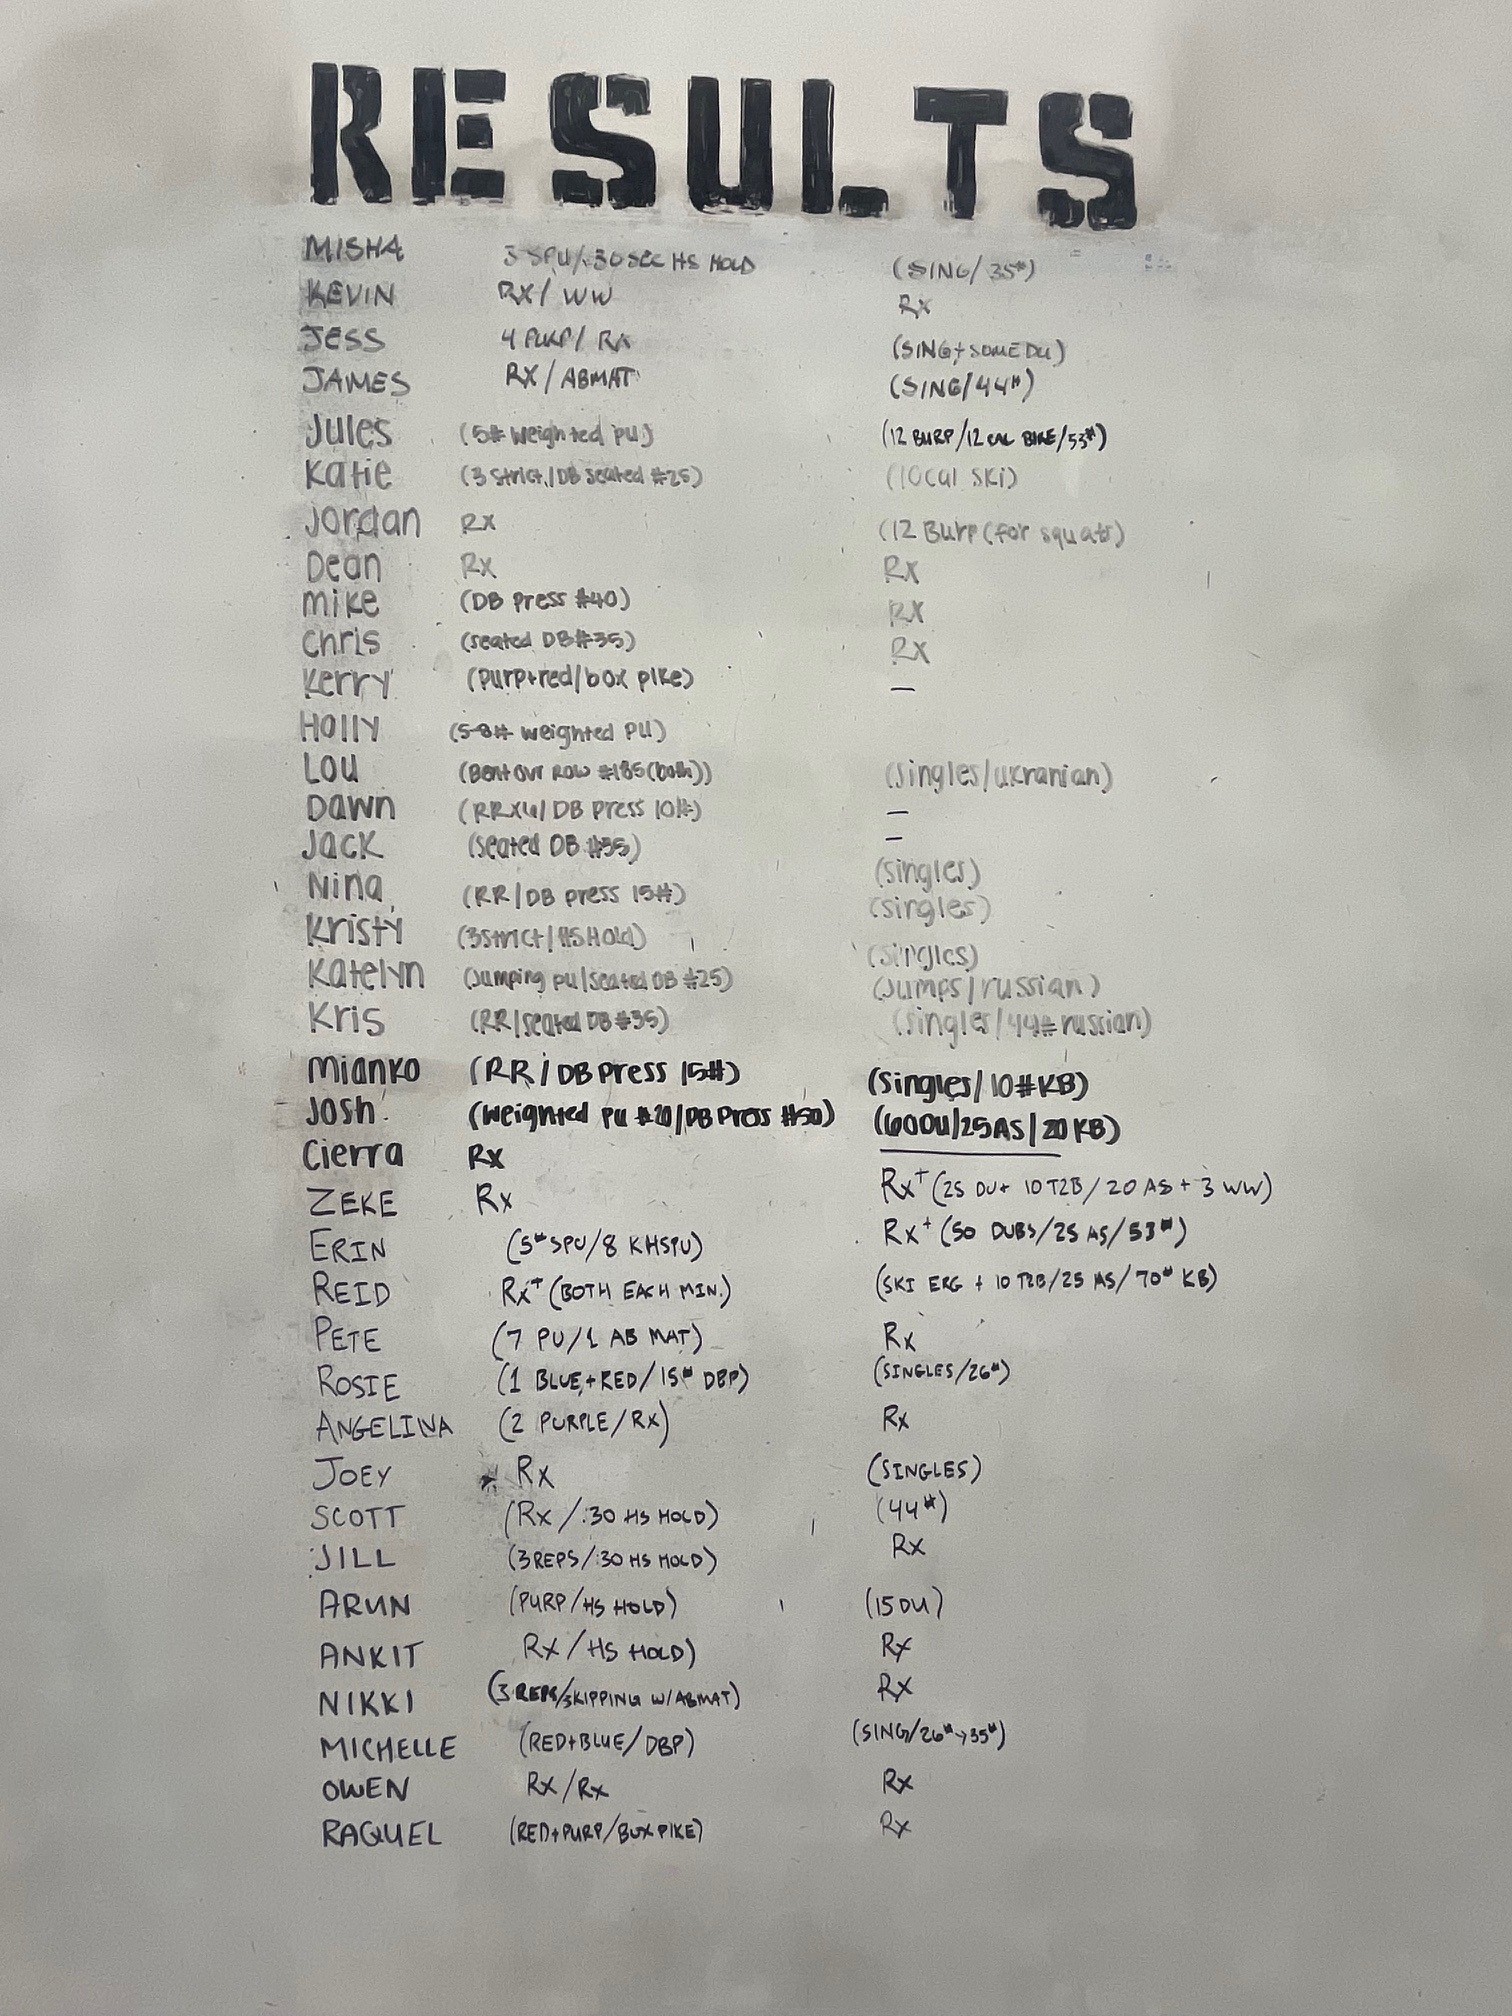 RESULTS
MISHA 3 SPU/:30 SEC HS HOLD (SING/35#)
KEVIN RX/WW RX
JESS 4 PURP/RX (SING+SOME DU)
JAMES RX/ABMAT (SING/44#)
Jules (5# weighted PU) (12 BURP/12 CAL BIKE/53#)
Katie (3 strict/DB seated #25) (10cal ski)
Jordan RX (12 Burp (for squats)
Dean RX RX
mike (DB Press #40) RX
chris (seated DB #35) RX
Kerry (purp+red/box pike) —
Holly (5-8# weighted PU)
Lou (Bent Ovr Row #185 (both)) (singles/ukranian)
Dawn (RRx4/DB Press 10#) —
Jack (seated DB #35) —
Nina (RR/DB press 15#) (singles)
Kristy (3strict/HS Hold) (singles)
Katelyn (Jumping pu/seated DB #25) (singles)
Kris (RR/seated DB #35) (Jumps/russian)
(singles/44# russian)
Mianko (RR/DB Press 15#) (singles/10#KB)
Josh (weighted PU #20/DB Press #50) (60DU/25AS/20KB)
Cierra RX
ZEKE RX RX+ (25 DU+ 10 T2B/20 AS + 3 WW)
ERIN (5# SPU/8 KHSPU) RX+ (50 DUBS/25 AS/53#)
REID RX+ (BOTH EACH MIN.) (SKI ERG + 10 T2B/25 AS/70# KB)
PETE (7 PU/1 AB MAT) RX
ROSIE (1 BLUE+RED/15# DBP) (SINGLES/26#)
ANGELINA (2 PURPLE/RX) RX
JOEY RX (SINGLES)
SCOTT (RX/:30 HS HOLD) (44#)
JILL (3REPS/:30 HS HOLD) RX
ARUN (PURP/HS HOLD) (15 DU)
ANKIT RX/HS HOLD) RX
NIKKI (3 REPS/SKIPPING W/ABMAT) RX
MICHELLE (RED+BLUE/DBP) (SING/26#→35#)
OWEN RX/RX RX
RAQUEL (RED+PURP/BOX PIKE) RX